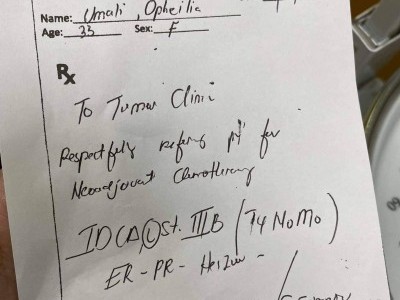 Name: Umali, Opheilia
Age: 33 Sex: F
Rx
To Tumor Clinic
Respectfully refering pt for
Neoadjuvant Chemotherapy
IDCA Ⓛ St. IIIB (T4 N0 M0)
ER - PR - Her2neu -